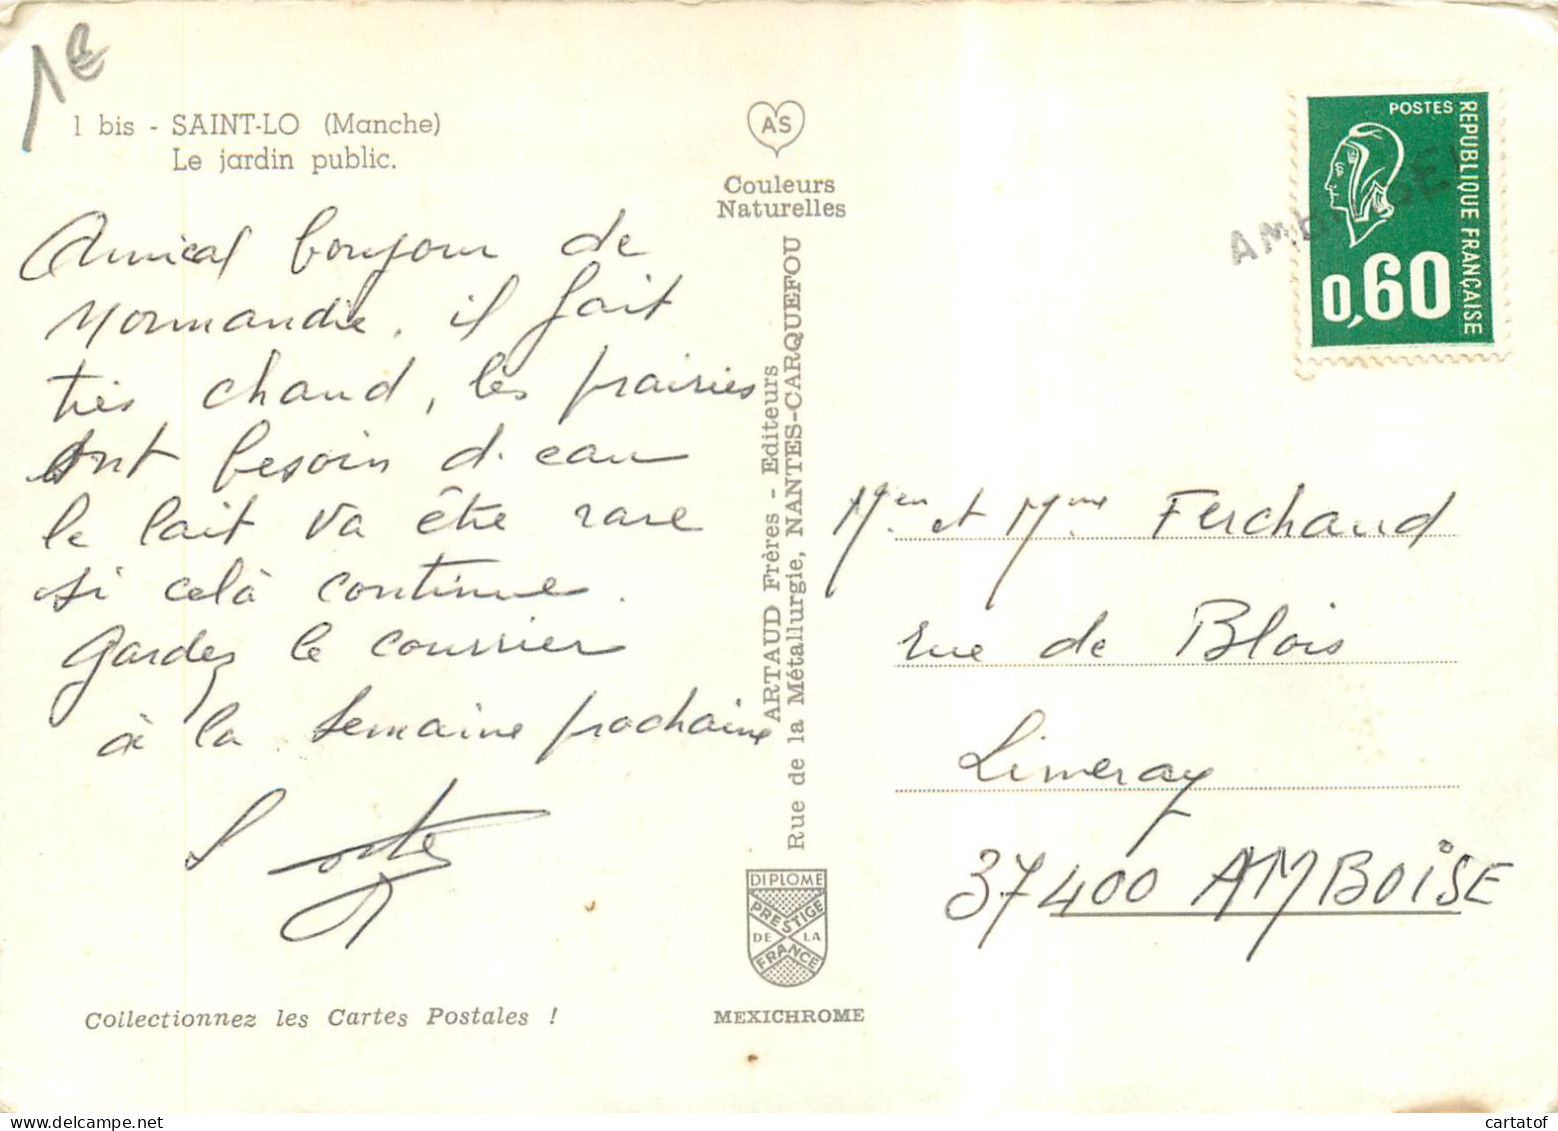 1€
1 bis - SAINT-LO (Manche)
Le jardin public.
Amical bonjour de
Normandie. il fait
très chaud, les prairies
ont besoin d'eau
le lait va être rare
si celà continue.
Gardez le courrier
à la semaine prochaine
Collectionnez les Cartes Postales !
AS
Couleurs
Naturelles
ARTAUD Frères - Editeurs
Rue de la Métallurgie, NANTES-CARQUEFOU
DIPLOME
PRESTIGE
DE LA
FRANCE
MEXICHROME
POSTES
REPUBLIQUE FRANÇAISE
0,60
Mr et Mme Ferchaud
rue de Blois
Limeray
37400 AMBOISE
cartatof